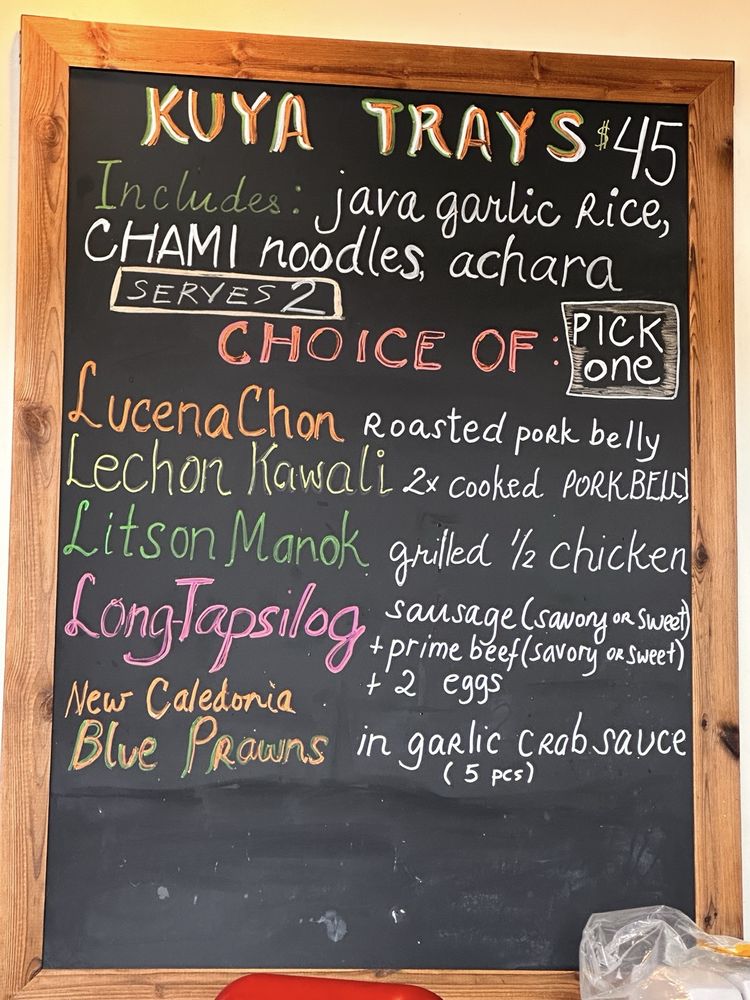 KUYA TRAYS $45
Includes: java garlic Rice,
CHAMI noodles, achara
SERVES 2
CHOICE OF: PICK one
LucenaChon Roasted pork belly
Lechon Kawali 2x cooked PORK BELLY
Litson Manok grilled 1/2 chicken
LongTapsilog sausage (savory or sweet)
+ prime beef (savory or sweet)
+ 2 eggs
New Caledonia
Blue Prawns in garlic crab sauce
(5 pcs)